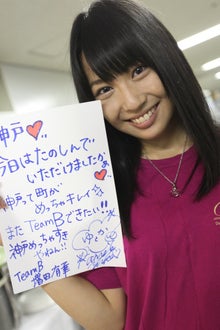 神戸♥
今日はたのしんで
いただけましたかぁ
神戸って町が
めっちゃキレイ☆
またTeamBできたい!!
神戸めっちゃすき
やねん!!
TeamB
増田有華
ゆか